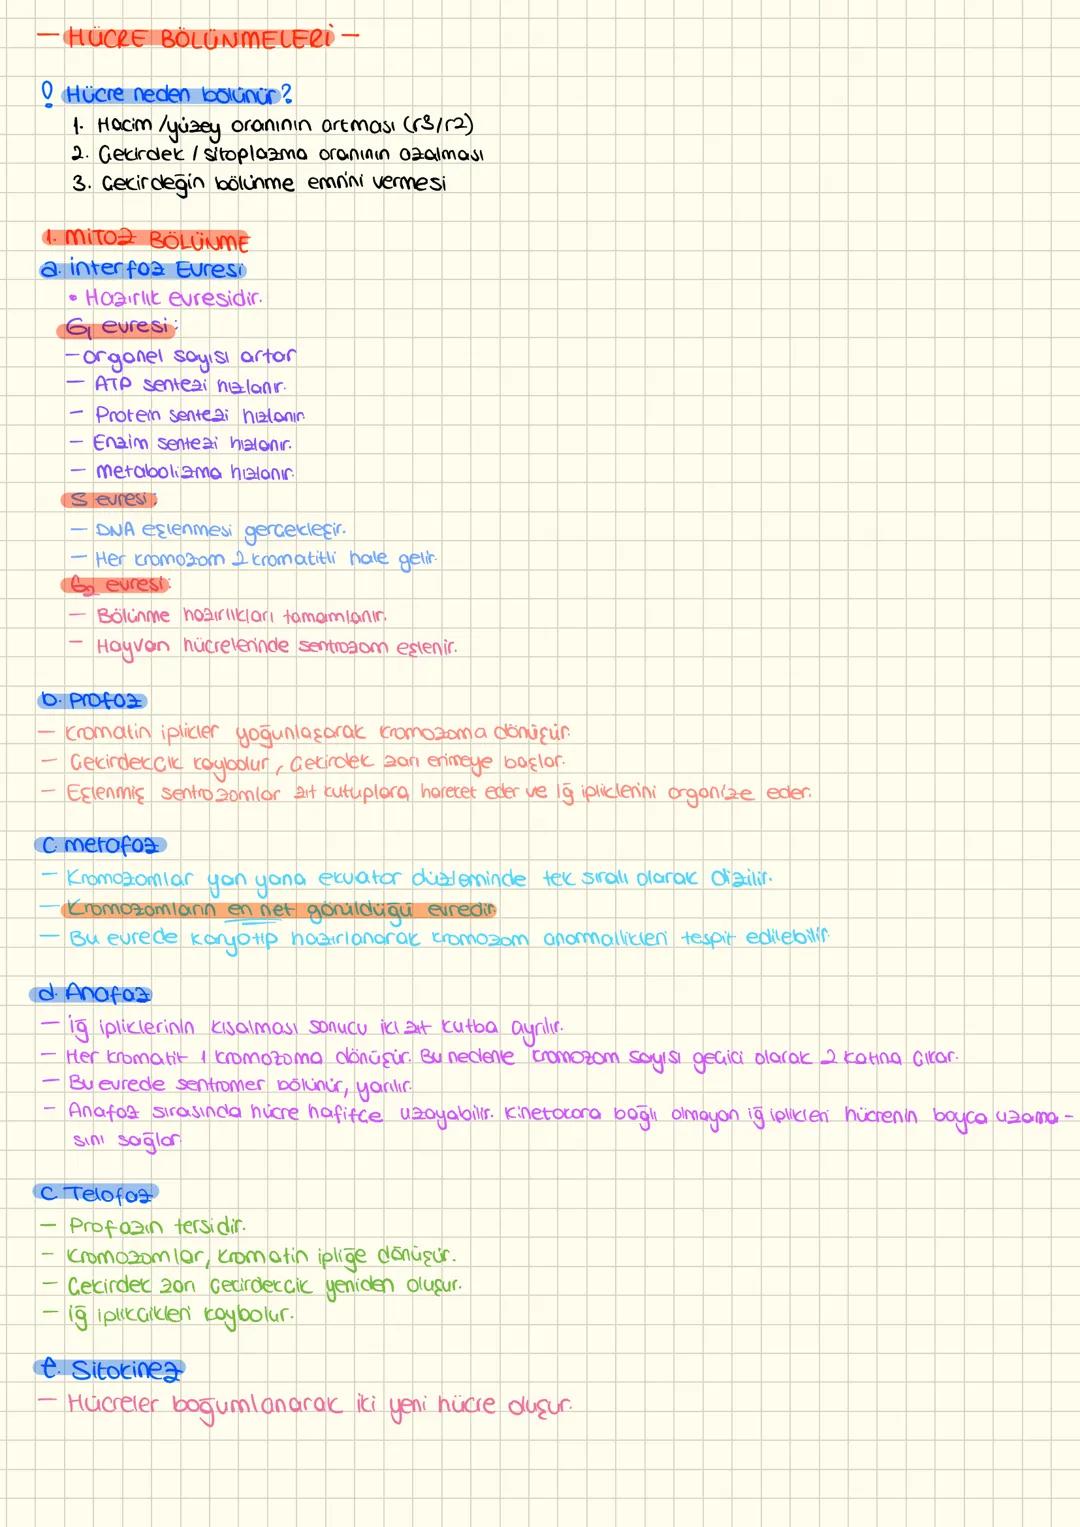 — HÜCRE BÖLÜNMELERİ —
! Hücre neden bölünür?
1. Hacim / yüzey oranının artması (r3/r2)
2. Çekirdek / sitoplazma oranının azalması
3. Çekirdeğin bölünme emrini vermesi
1. MİTOZ BÖLÜNME
a. interfaz Evresi
• Hazırlık evresidir.
G1 evresi:
— organel sayısı artar
— ATP sentezi hızlanır.
— Protein sentezi hızlanır
— Enzim sentezi hızlanır.
— metabolizma hızlanır.
S evresi:
— DNA eşlenmesi gerçekleşir.
— Her kromozom 2 kromatitli hale gelir.
G2 evresi:
— Bölünme hazırlıkları tamamlanır.
— Hayvan hücrelerinde sentrozom eşlenir.
b. Profaz
— Kromatin iplikler yoğunlaşarak kromozoma dönüşür.
— Çekirdekçik kaybolur, Çekirdek zarı erimeye başlar.
— Eşlenmiş sentrozomlar zıt kutuplara hareket eder ve iğ ipliklerini organize eder.
c. metafaz
— Kromozomlar yan yana ekvator düzleminde tek sıralı olarak dizilir.
— Kromozomların en net görüldüğü evredir
— Bu evrede karyotip hazırlanarak kromozom anormallikleri tespit edilebilir.
d. Anafaz
— iğ ipliklerinin kısalması sonucu iki zıt kutba ayrılır.
— Her kromatit 1 kromozoma dönüşür. Bu nedenle kromozom sayısı geçici olarak 2 katına çıkar.
— Bu evrede sentromer bölünür, yarılır.
— Anafaz sırasında hücre hafifçe uzayabilir. Kinetokora bağlı olmayan iğ iplikleri hücrenin boyca uzama-
sını sağlar.
c Telofaz
— Profazın tersidir.
— Kromozomlar, kromatin ipliğe dönüşür.
— Çekirdek zarı Çekirdekcik yeniden oluşur.
— iğ iplikçikleri kaybolur.
e. Sitokinez
— Hücreler boğumlanarak iki yeni hücre oluşur.